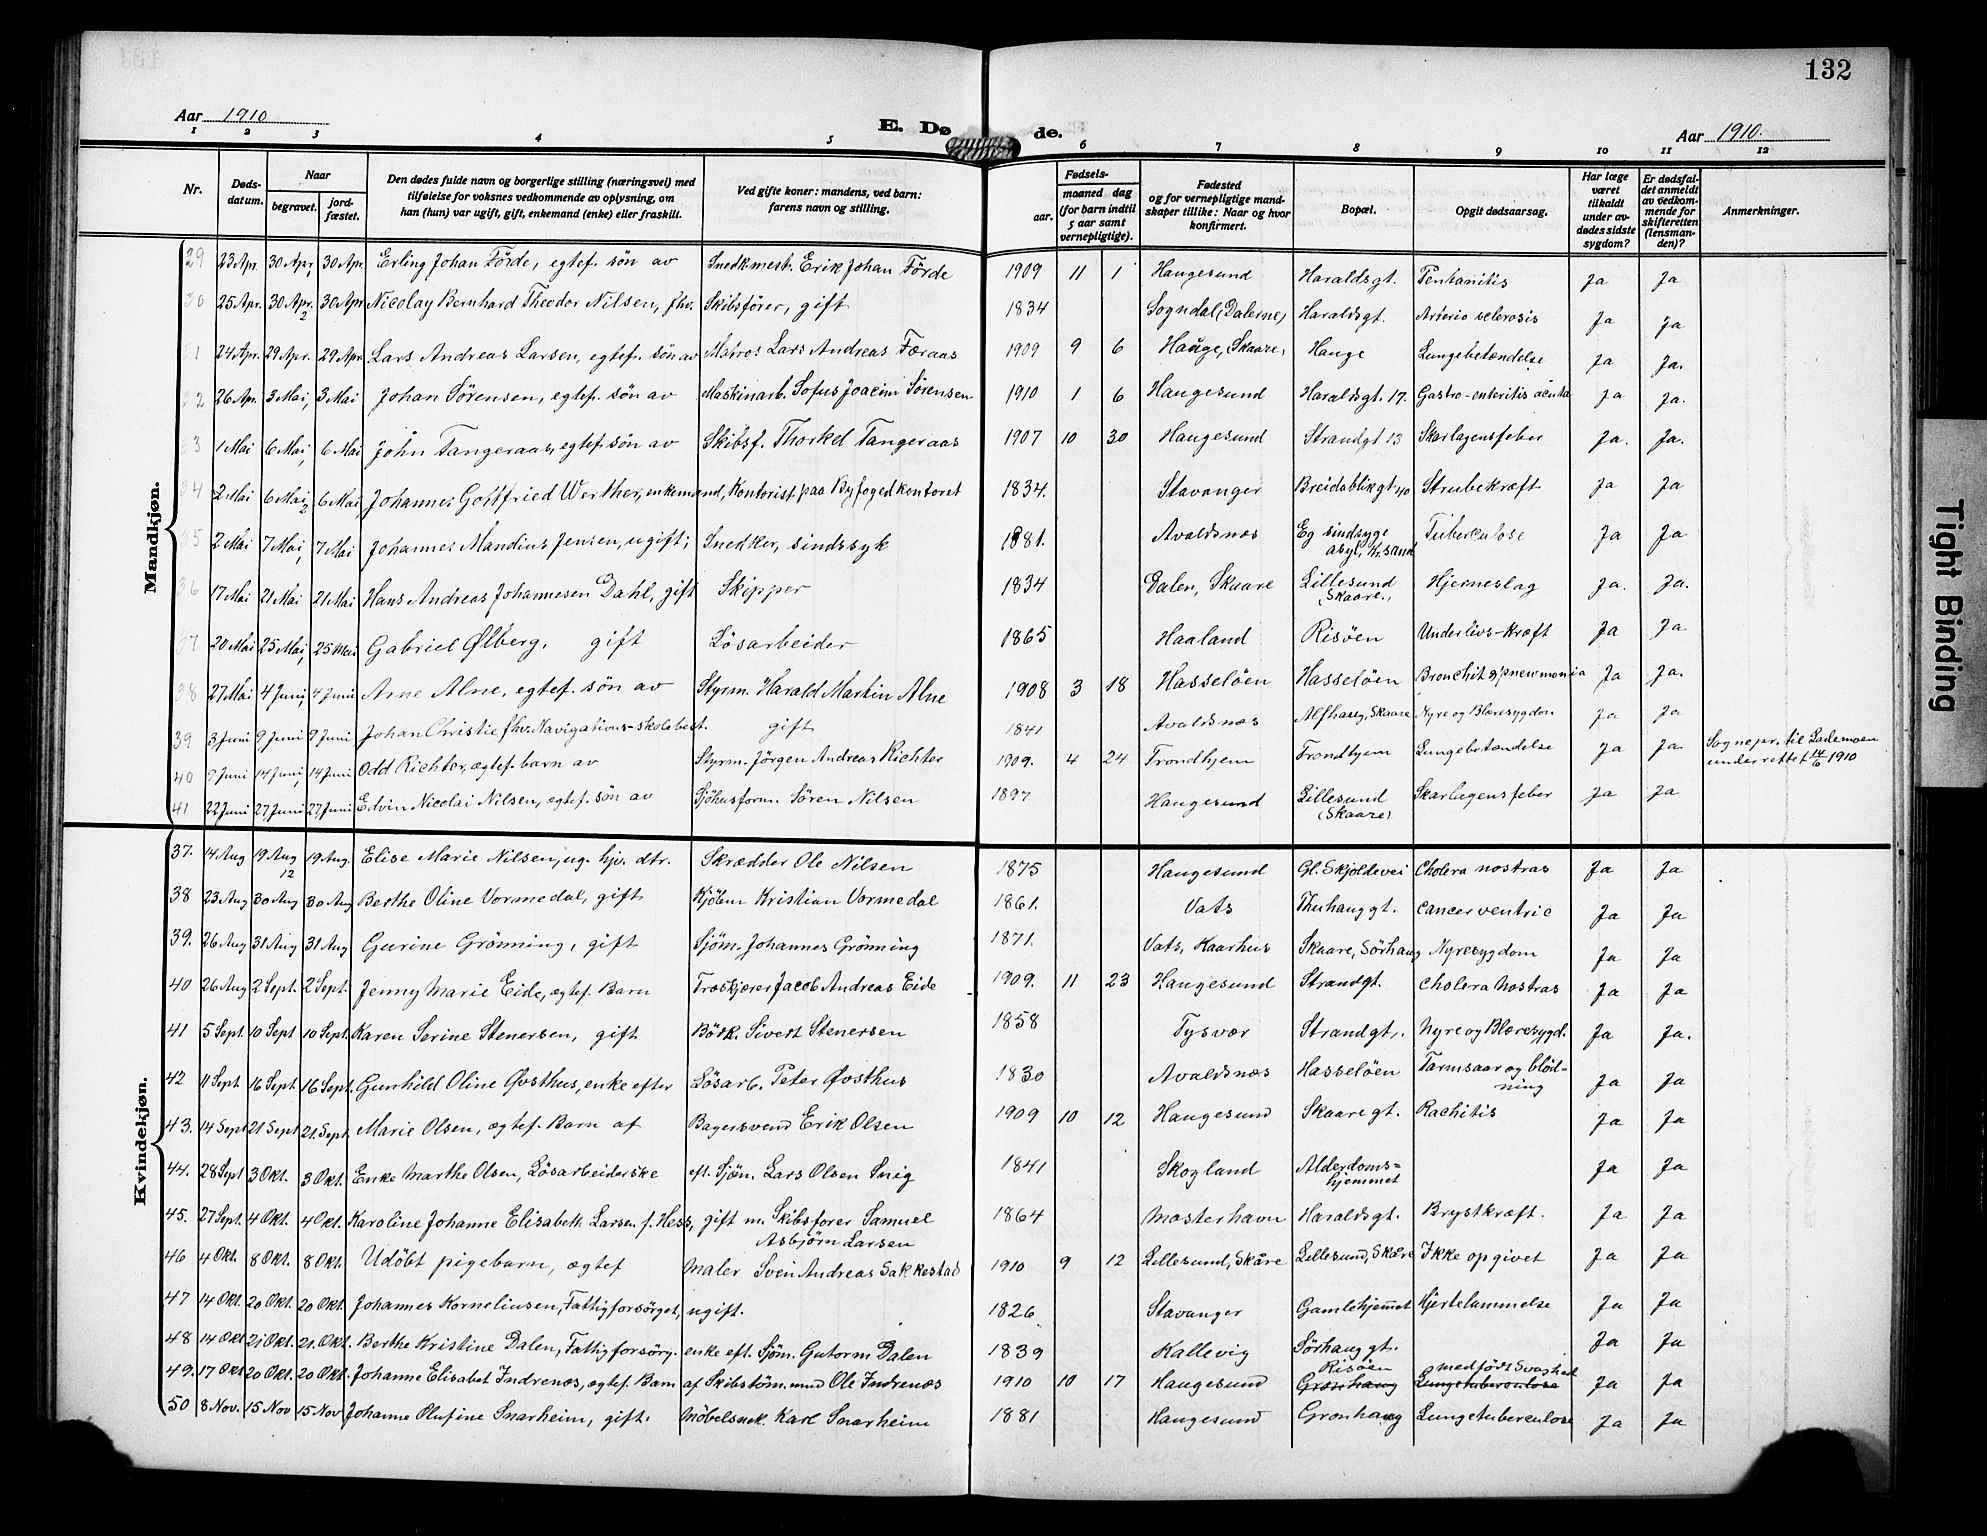 132
Aar 1910
E. Dø de.
Aar 1910.
1 2 3 4 5 6 7 8 9 10 11 12
Nr.
Døds-datum.
Naar
begravet.
jord-fæstet.
Den dødes fulde navn og borgerlige stilling (næringsvei) med
tilføielse for voksnes vedkommende av oplysning, om
han (hun) var ugift, gift, enkemand (enke) eller fraskilt.
Ved gifte koner: mandens, ved barn:
farens navn og stilling.
Fødsels-
aar.
maaned dag
(for barn indtil
5 aar samt
vernepligtige).
Fødested
og for vernepligtige mand-
skaper tillike: Naar og hvor
konfirmert.
Bopæl.
Opgit dødsaarsag.
Har læge
været
tilkaldt
under av-
dødes sidste
sygdom?
Er dødsfal-
det anmeldt
av vedkom-
mende for
skifteretten
(lensman-
den)?
Anmerkninger.
Mandkjøn.
29 23 Apr 30 Apr, 30 Apr. Erling Johan Förde, egtef. søn av Snedkmest. Erik Johan Förde 1909 11 1 Haugesund Haraldsgt. Ja Ja
30 25 Apr. 30 Apr. 2 30 Apr Nicolay Bernhard Theodor Nilsen, fhv. Skibsförer, gift 1834 Sogndal, (Dalerne) Haraldsgt. Arterio sclerosis Ja Ja
31 24 Apr. 29 Apr. 29 Apr. Lars Andreas Larsen, egtef. søn av Matros Lars Andreas Færaas 1909 9 6 Hauge, Skaare, Hauge Lungebetændelse Ja Ja.
32 26 Apr. 3 Mai, 3 Mai Johan Sørensen, egtef. søn av Maskinarb. Sofus Joacim Sørensen 1910 1 6 Haugesund Haraldsgt. 17. Gastro-enteritis acuta Ja Ja.
33 1 Mai 6 Mai, 6 Mai John Tangeraas, egtef. søn av Skibsf. Thorkel Tangeraas 1907 10 30 Haugesund Strandgt 13 Skarlagensfeber Ja. Ja.
34 2 Mai 6 Mai, 2 6 Mai, Johannes Gottfried Werther, enkemand, Kontorist paa Byfogedkontoret 1834. Stavanger Breidablikgt 40 Strubekræft Ja Ja
35 2 Mai 7 Mai, 7 Mai Johannes Mandius Jensen, ugift; Snedker, sindssyk 1881. Avaldsnæs Eg sindsyge asyl, Kr.sand Tuberculose Ja Ja
36 17 Mai 21 Mai 21 Mai Hans Andreas Johannesen Dahl, gift Skipper 1834 Dalen, Skaare Lillesund (Skaare., Hjerneslag Ja. Ja.
37 20 Mai 25 Mai, 25 Mai Gabriel Ølberg, gift Lösarbeider 1865 Haaland Risöen Underlivs-kræft Ja Ja
38 27 Mai 4 Juni, 4 Juni Arne Alne, egtef. søn av Styrm. Harald Martin Alne 1908 3 18 Hasselöen Hasselöen Bronchit og pneumonia Ja Ja.
39 3 Juni 9 Juni 9 Juni Johan Christie fhv. Navigations-skolebest. gift 1841 Avaldsnæs Alfhaug, Skaare Nyre og Blæresygdom Ja Ja
40 9 Juni 14 Juni, 14 Juni Odd Richter, ægtef. barn av Styrm. Jörgen Andreas Richter 1909. 4 24 Trondhjem Trondhjem Lungebetændelse Ja Ja Sognepr. til Lademoen underrettet 14/6 1910
41 22 Juni 27 Juni 27 Juni Edvin Nicolai Nilsen, ægtef. søn av Sjöhusform. Sören Nilsen 1897 Haugesund Lillesund (Skaare) Skarlagensfeber Ja Ja
Kvindekjøn.
37. 14 Aug 19 Aug 12 19 Aug. Elise Marie Nilsen, ug. hjv. dtr. Skrædder Ole Nilsen 1875 Haugesund Gl. Skjoldevei Cholera nostras Ja Ja
38 23 Aug 30 Aug 30 Aug Berthe Oline Vormedal, gift Kjöbm Kristian Vormedal 1861. Vats Thuhauggt. Cancer ventric Ja Ja
39. 26 Aug 31 Aug 31 Aug Gurine Grönning, gift Sjöm. Johannes Grönning 1871. Vats, Kaarhus Skaare, Sörhaug Nyresygdom Ja Ja
40 26 Aug 2 Sept. 2 Sept. Jenny Marie Eide, ægtef. Barn Træskjærer Jacob Andreas Eide 1909. 11 23 Haugesund Strandgt. Cholera nostras Ja Ja
41 5 Sept 10 Sept 10 Sept. Karen Serine Stenersen, gift Bödk. Sivert Stenersen 1858 Tysvær Strandgt,. Nyre og Blæresygd. Ja Ja.
42 11 Sept 16 Sept. 16 Sept. Gunhild Oline Østhus, enke efter Lösarb. Peter Østhus 1830 Avaldsnæs Hasselöen Tarmsaar og blödning Ja Ja
43. 14 Sept 21 Sept 21. Sept Marie Olsen, ægtef. Barn af Bagersvend Erik Olsen 1909 10 12 Haugesund Skaaregt. Rachitis Ja Ja
44. 28 Sept 3 Okt. 3 Okt. Enke Marthe Olsen, Lösarbeiderske eft. Sjöm. Lars Olsen Snig 1841 Skogland Alderdoms=hjemmet Ja Ja
45. 27 Sept. 4 Okt. 4 Okt. Karoline Johanne Elisabeth Larsen f. Hess, gift m. Skibsfører Samuel Asbjörn Larsen 1864 Mosterhavn Haraldsgt. Brystkræft. Ja Ja
46 4 Okt. 8 Okt. 8 Okt. Udöbt pigebarn, ægtef Maler Sven Andreas Sakkestad 1910 9 12 Lillesund, Skåre Lillesund, Skåre Ikke opgivet Ja Ja
47 14 Okt. 20 Okt. 20 Okt. Johannes Korneliussen, Fattigforsörget, ugift. 1826 Stavanger Gamlehjemmet Hjertelammelse Ja Ja
48 14 Okt 21 Okt. 21. Okt. Berthe Kristine Dalen, Fattigforsörg. enke eft. Sjöm. Gutorm Dalen 1839 Kallevig Sörhauggt. Ja Ja
49. 17 Okt 20 Okt. 20 Okt. Johanne Elisabet Indrenæs, ægtef. Barn af Skibstöm.mnd Ole Indrenæs 1910 10 17 Haugesund Risöen Grönhaug medfödt Svaghed Lungetuberculose Ja Ja
50 8 Nov. 15 Nov 15 Nov Johanne Olufine Snarheim, gift. Möbelsnek. Karl Snarheim 1881 Haugesund Grönhaug Lungetuberculose Ja Ja
Tight Binding